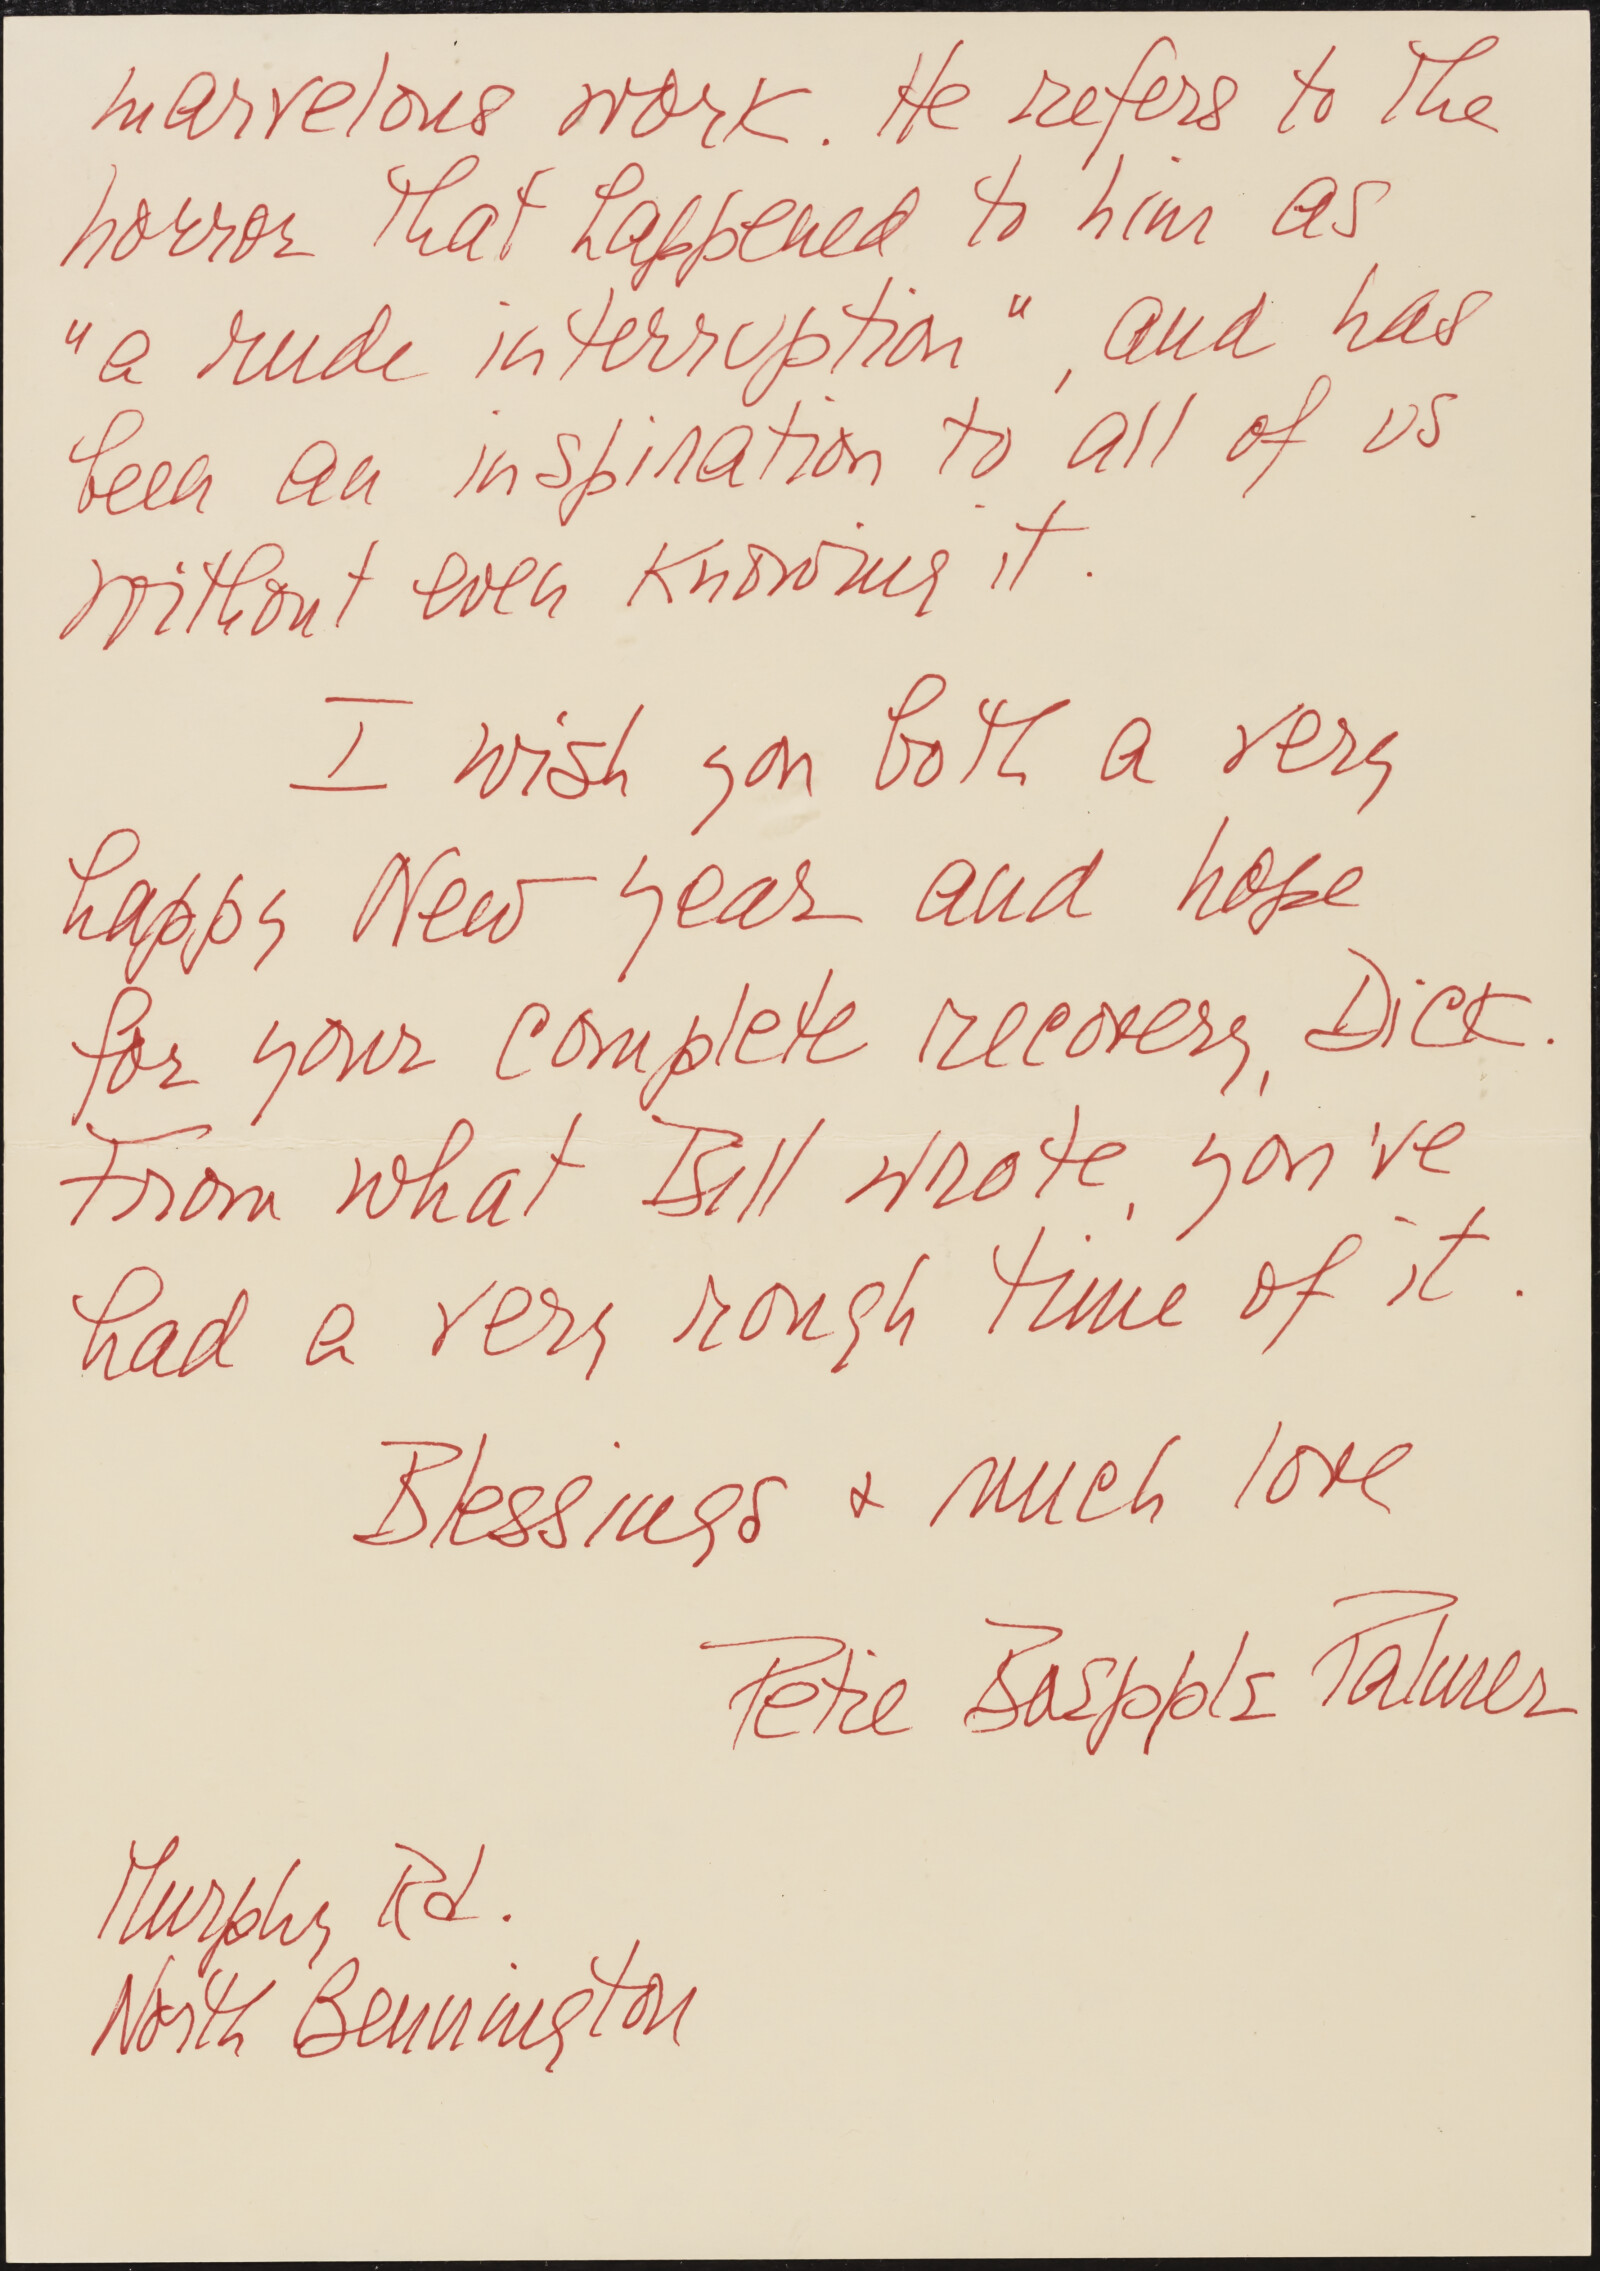 marvelous work. He refers to the
horror that happened to him as
"a rude interruption", and has
been an inspiration to all of us
without even knowing it.
I wish you both a very
happy New Year and hope
for your complete recovery, Dick.
From what Bill wrote, you've
had a very rough time of it.
Blessings & much love
Petie Boepple Palmer
Murphy Rd.
North Bennington